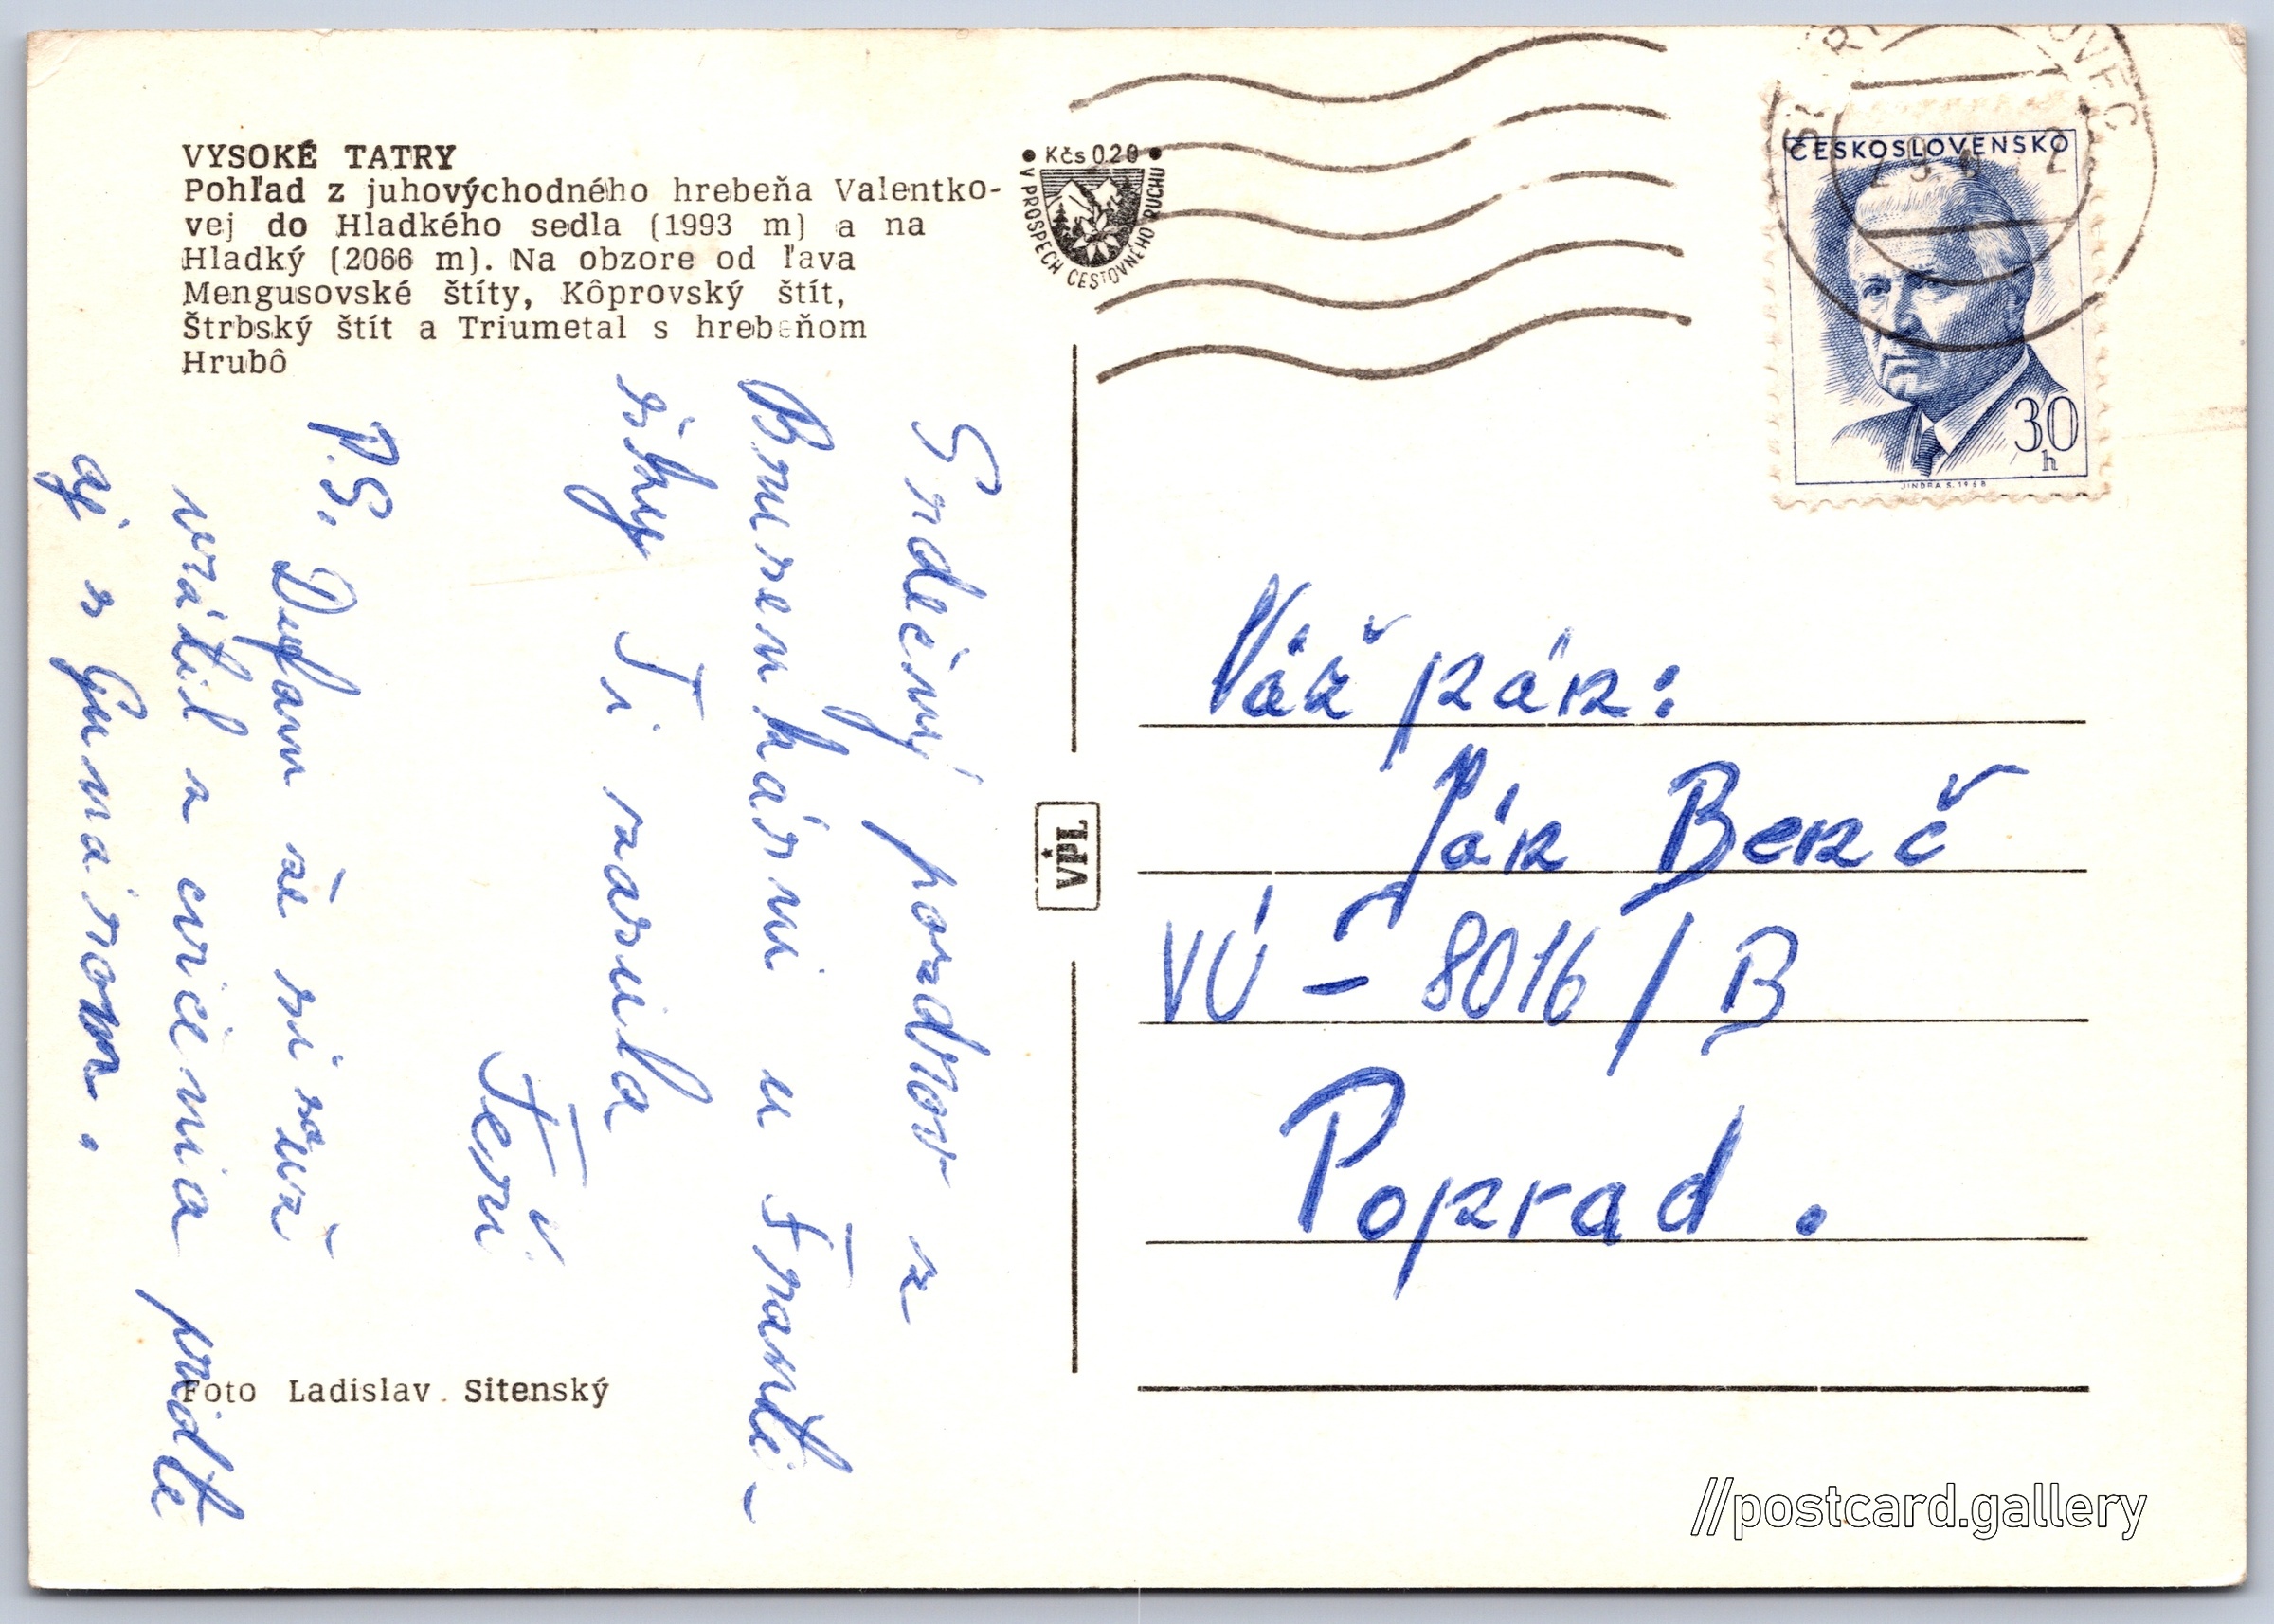 VYSOKÉ TATRY
Pohľad z juhovýchodného hrebeňa Valentko-
vej do Hladkého sedla (1993 m) a na
Hladký (2066 m). Na obzore od ľava
Mengusovské štíty, Kôprovský štít,
Štrbský štít a Triumetal s hrebeňom
Hrubô
Srdečný pozdrav z
u Františ-
Ti zasiela
Feri
P.S. Dúfam že si sa už
vrátil z cvičenia príďte
aj s
Foto Ladislav Sitenský
• Kčs 0.20 •
V PROSPECH CESTOVNÉHO RUCHU
VPL
ČESKOSLOVENSKO
30
h
JINDRA S. 1968
Váž pán:
Ján Benč
VÚ – 8016/B
Poprad.
//postcard.gallery